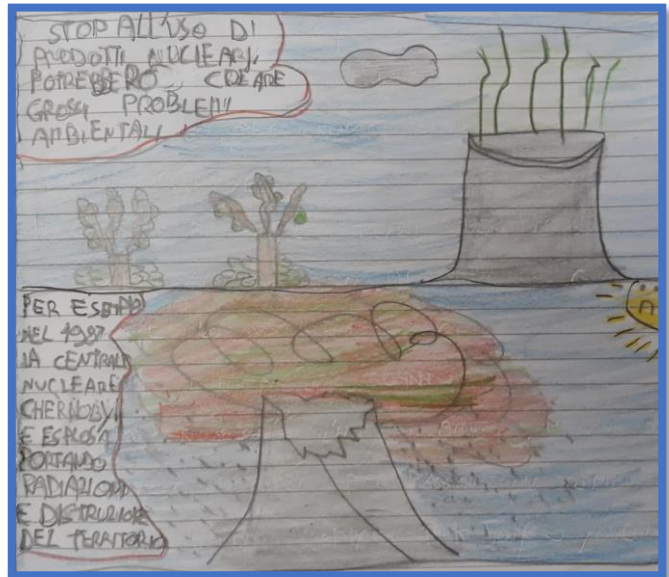 STOP ALL'USO DI
PRODOTTI NUCLEARI.
POTREBBERO CREARE
GROSSI PROBLEMI
AMBIENTALI
PER ESEMPIO
NEL 1987
LA CENTRALE
NUCLEARE
CHERNOBYL
E ESPLOSA
PORTANDO
RADIAZIONI
E DISTRUZIONE
DEL TERRITORIO